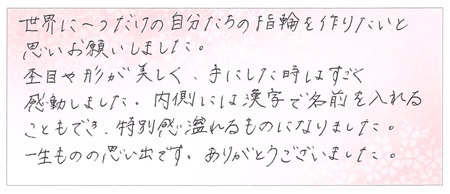 世界に一つだけの自分たちの指輪を作りたいと
思いお願いしました。
杢目や形が美しく、手にした時はすごく
感動しました。内側には漢字で名前を入れる
こともでき、特別感溢れるものになりました。
一生ものの思い出です。ありがとうございました。